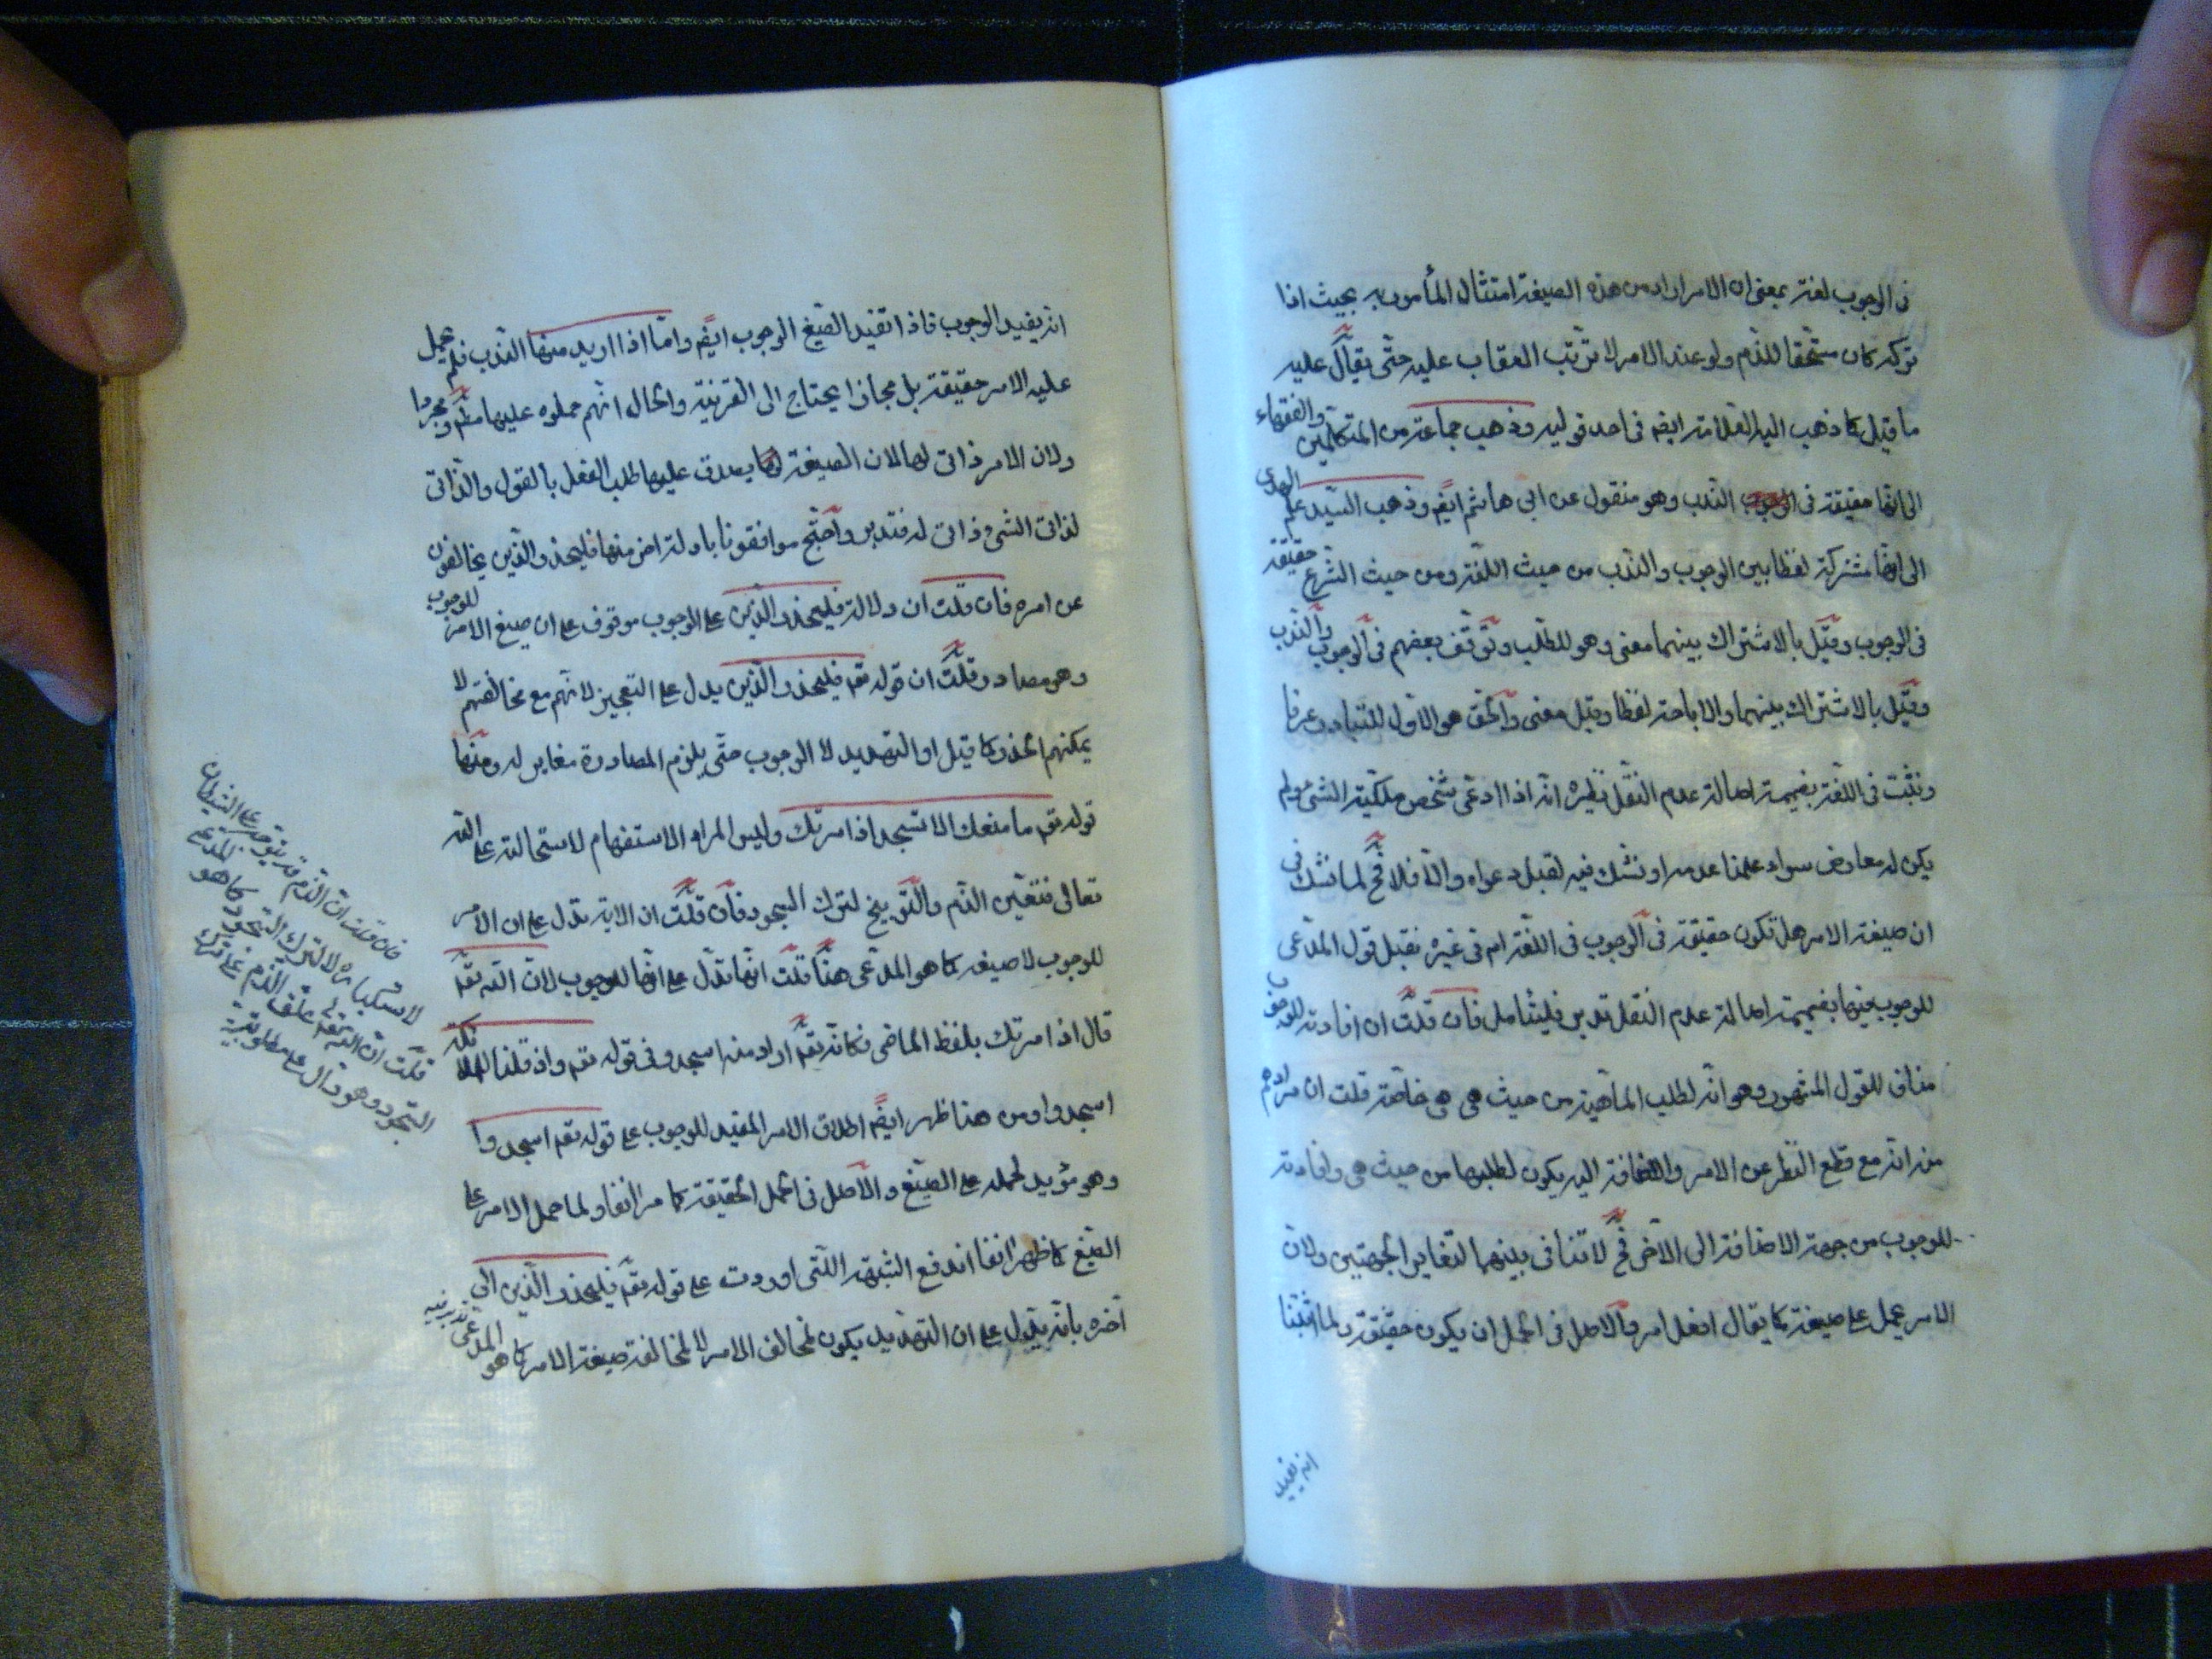 فى الوجوب لغة بمعنى ان الامر اراد من هذه الصيغة امتثال المأمور به بحيث اذا
تركه كان مستحقا للذم ولو عند الامر لا ترتب العقاب عليه حتى يقال عليه
ما قيل كما ذهب اليه العلامة ايضم فى احد قوليه وذهب جماعة من المتكلمين والفقهاء
الى انها حقيقة فى الندب وهو منقول عن ابى هاشم ايضم وذهب السيد علم الهدى
الى انها مشتركة لفظا بين الوجوب والندب من حيث اللغة ومن حيث الشرع حقيقة
فى الوجوب وقيل بالاشتراك بينهما معنى وهو للطلب وتوقف بعضهم فى الوجوب والندب
وقيل بالاشتراك بينهما والاباحة لفظا وقيل معنى والحق هو الاول للتبادر عرفا
ونثبت فى اللغة بضميمة اصالة عدم النقل نظيره انه اذا ادعى شخص ملكية الشئ ولم
يكن له معارض سواء علمنا عدمه او نشك فيه لقبل دعواه والا فلا فح لما نشك فى
ان صيغة الامر هل تكون حقيقة فى الوجوب فى اللغة ام فى غيره نقبل قول المدعى
للوجوب فيها بضميمة اصالة عدم النقل تدبر فليتأمل فان قلت ان افادته للوجوب
مناف للقول المشهور وهو انه لطلب الماهية من حيث هى هى خاصة قلت ان مرادهم
من انه مع قطع النظر عن الامر والاضافة اليه يكون لطلبها من حيث هى وافادته
للوجوب من جهة الاضافة الى الآخر فح لا تنافى بينهما لتغاير الجهتين ولان
الامر يحمل على صيغة كما يقال افعل امر والاصل فى الحمل ان يكون حقيقة ولما اثبتنا
انه يفيد
انه يفيد الوجوب فاذا تفيد الصيغ الوجوب ايضم واما اذا اريد منها الندب فلم يحمل
عليه الامر حقيقة بل مجازا يحتاج الى القرينة والحال انهم حملوه عليها مطم ومجردا
ولان الامر ذاتى لها لان الصيغة يصدق عليها طلب الفعل بالقول والذاتى
لذاتى الشئ ذاتى له فتدبر واحتج موافقونا بادلة اخر منها فليحذر الذين يخالفون
عن امره فان قلت ان دلالة فليحذر الذين على الوجوب موقوف على ان صيغ الامر للوجوب
وهو مصادر وقلت ان قوله تعم فليحذر الذين يدل على التعجيز لانهم مع مخالفتهم لا
يمكنهم الحذر كما قيل او التهديد لا الوجوب حتى يلزم المصادرة مغاير له ومنها
قوله تعم ما منعك الا تسجد اذ امرتك وليس المراد الاستفهام لاستحالته على الله
تعالى فتعين الذم والتوبيخ لترك السجود فان قلت ان الاية تدل على ان الامر
للوجوب لا صيغه كما هو المدعى هنا قلت انها تدل على انها للوجوب لان الله تعم
قال اذ امرتك بلفظ الماضى فكانه تعم اراد منه اسجدوا فى قوله تعم واذ قلنا للملائكة
اسجدوا ومن هنا ظهر ايضم اطلاق الامر المقيد للوجوب على قوله تعم اسجدوا
وهو مؤيد لحمله على الصيغ والاصل فى الحمل الحقيقة كما مر انفا ولما حمل الامر على
الصيغ كما ظهر انفا اندفع الشبهة اللتى اوردت على قوله تعم فليحذر الذين الى
آخره بانه يدل على ان التهديد يكون لمخالف الامر لا لمخالفة صيغة الامر كما هو المدعى تدبر فيه
فان قلت ان الذم قد يتوجه على الشيطان
لاستكباره لا لترك السجود كما هو المدعى
قلت ان الله تعم علق الذم على ترك
السجود وهو دال على مطلوبية